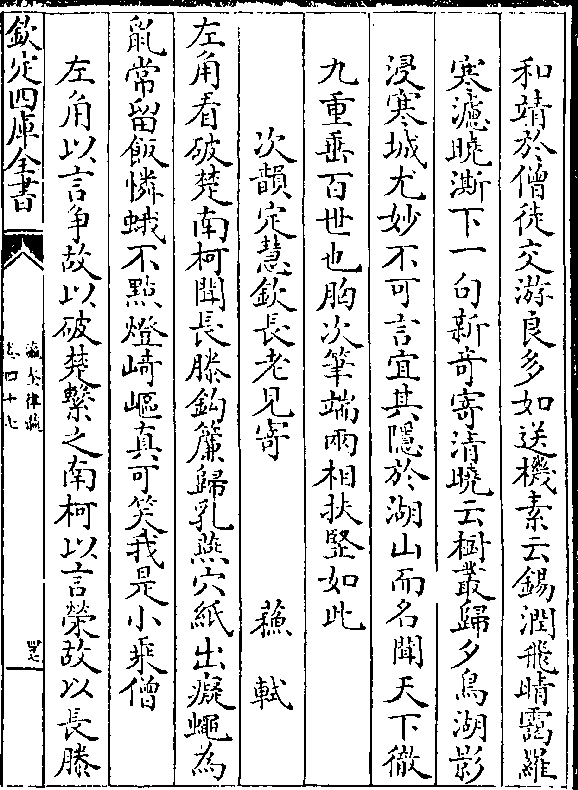 和靖於僧徒交游良多如送機素云錫潤飛晴靄羅
寒濾曉澌下一句新奇寄清曉云樹叢歸夕鳥湖影
浸寒城尤妙不可言宜其隱於湖山而名聞天下徹
九重垂百世也胸次筆端兩相扶竪如此
次韻定慧欽長老見寄 蘇軾
左角看破楚南柯聞長滕鈎簾歸乳燕穴紙出癡蠅為
鼠常留飯憐蛾不點燈崎嶇真可笑我是小乘僧
左角以言爭故以破楚繫之南柯以言榮故以長滕
欽定四庫全書
瀛奎律髓
卷四十七